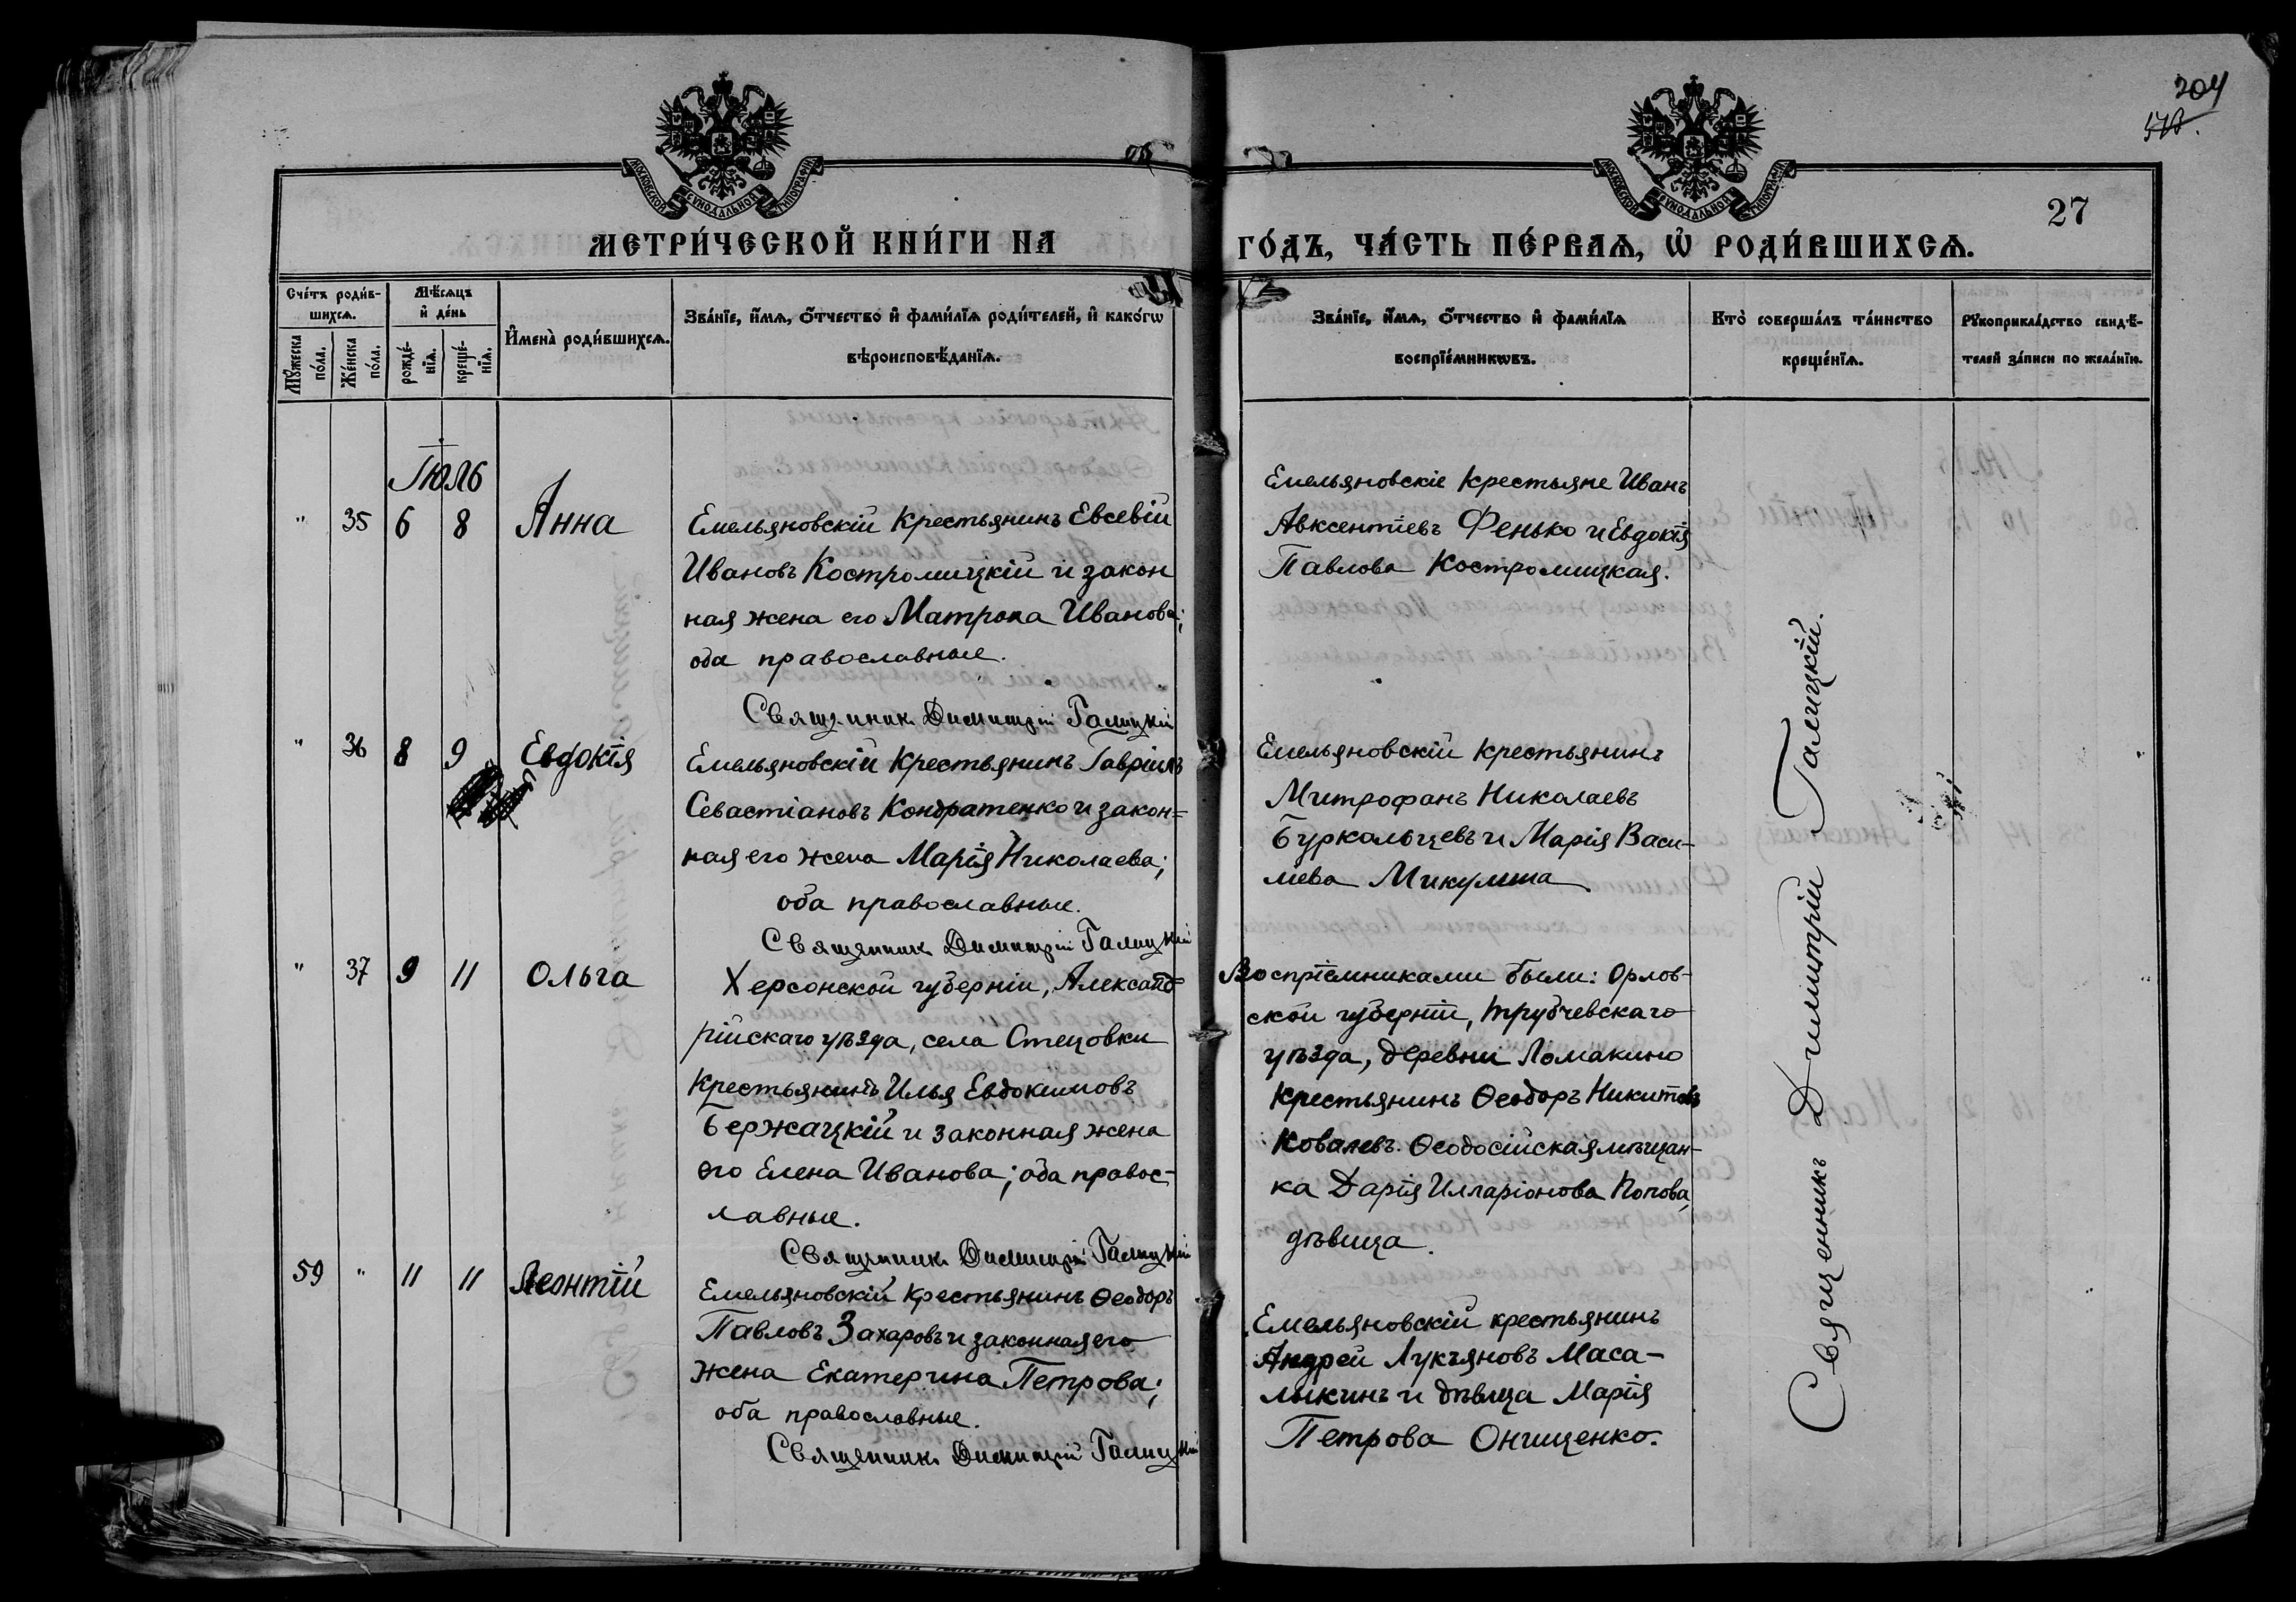 204
27
МОСКОВСКОЙ СѴНОДАЛЬНОЙ ТИПОГРАФІИ
МОСКОВСКОЙ СѴНОДАЛЬНОЙ ТИПОГРАФІИ
МЕТРИ́ЧЕСКОЙ КНИ́ГИ НА
ГО́ДЪ, ЧА́СТЬ ПЕ́РВАѦ, Ѡ҆ РОДИ́ВШИХСѦ.
Сче́тъ роди́в-
шихсѧ.
Мꙋ́жеска
по́ла.
Же́нска
по́ла.
Мѣ́сѧцъ
и҆ де́нь
рожде́-
нїѧ.
креще́-
нїѧ.
И҆мена̀ роди́вшихсѧ.
Зва́нїе, и҆́мѧ, о҆́тчество и҆ фами́лїѧ роди́телей, и҆ како́гѡ
вѣроисповѣ́данїѧ.
Зва́нїе, и҆́мѧ, о҆́тчество и҆ фами́лїѧ
воспрїе́мникѡвъ.
Кто̀ соверша́лъ та́инство
креще́нїѧ.
Рꙋкоприкла́дство свидѣ́-
телей за́писи по жела́нїю.
Іюль
" 35 6 8 Анна
Емельяновскій крестьянинъ Евсевій
Ивановъ Костромицкій и закон
ная жена его Матрона Иванова;
оба православные.
Священникъ Димитрій Галицкій
Емельяновскіе крестьяне Иванъ
Авксентіевъ Фенько и Евдокія
Павлова Костромицкая.
" 36 8 9 Евдокія
Емельяновскій крестьянинъ Гавріилъ
Севастіановъ Кондратенко и закон=
ная его жена Марія Николаева;
оба православные.
Священникъ Димитрій Галицкій
Емельяновскій крестьянинъ
Митрофанъ Николаевъ
Буркальцевъ и Марія Васи-
лиева Микулина
" 37 9 11 Ольга
Херсонской губерніи, Александ-
рійскаго уѣзда, села Стецовки
Крестьянинъ Илья Евдокимовъ
Бержацкій и законная жена
его Елена Иванова; оба правос-
лавные.
Священникъ Димитрій Галицкій
Воспріемниками были: Орлов-
ской губерніи, Трубчевскаго
уѣзда, деревни Ломакино
крестьянинъ Ѳеодоръ Никитовъ
Ковалевъ. Ѳеодосійская мѣщан-
ка Дарія Илларіонова Попова,
дѣвица.
59 " 11 11 Леонтій
Емельяновскій крестьянинъ Ѳеодоръ
Павловъ Захаровъ и законная его
жена Екатерина Петрова;
оба православные.
Священникъ Димитрій Галицкій
Емельяновскій крестьянинъ
Андрей Лукьяновъ Маса-
лыкинъ и дѣвица Марія
Петрова Онищенко.
Священникъ Димитрій Галицкій.